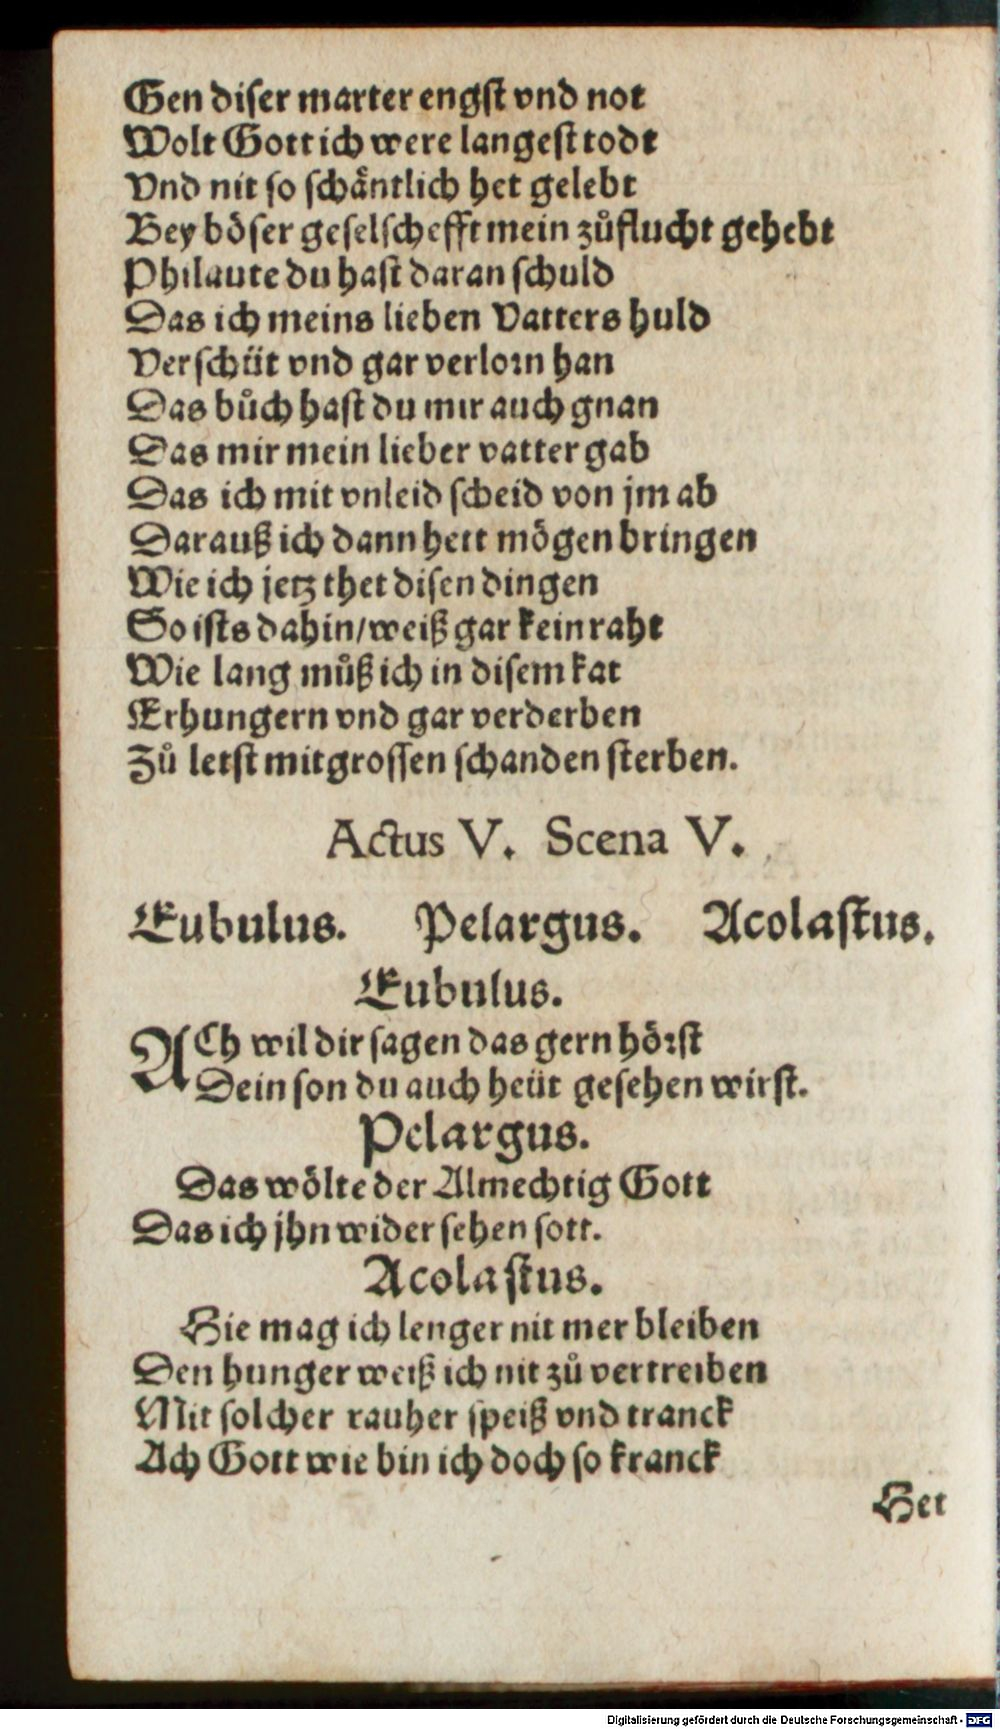 Gen diser marter engst vnd not
Wolt Gott ich were langest todt
Vnd nit so schäntlich het gelebt
Bey böser geselschefft mein zůflucht gehebt
Philaute du hast daran schuld
Das ich meins lieben Vatters huld
Verschüt vnd gar verlorn han
Das bůch hast du mir auch gnan
Das mir mein lieber vatter gab
Das ich mit vnleid scheid von jm ab
Darauß ich dann hett mögen bringen
Wie ich jetz thet disen dingen
So ists dahin/weiß gar kein raht
Wie lang můß ich in disem kat
Erhungern vnd gar verderben
Zů letst mit grossen schanden sterben.
Actus V. Scena V.
Eubulus. Pelargus. Acolastus.
Eubulus.
ACh wil dir sagen das gern hörst
Dein son du auch heüt gesehen wirst.
Pelargus.
Das wölte der Almechtig Gott
Das ich jhn wider sehen sott.
Acolastus.
Hie mag ich lenger nit mer bleiben
Den hunger weiß ich nit zů vertreiben
Mit solcher rauher speiß vnd tranck
Ach Gott wie bin ich doch so kranck
Het
Digitalisierung gefördert durch die Deutsche Forschungsgemeinschaft - DFG